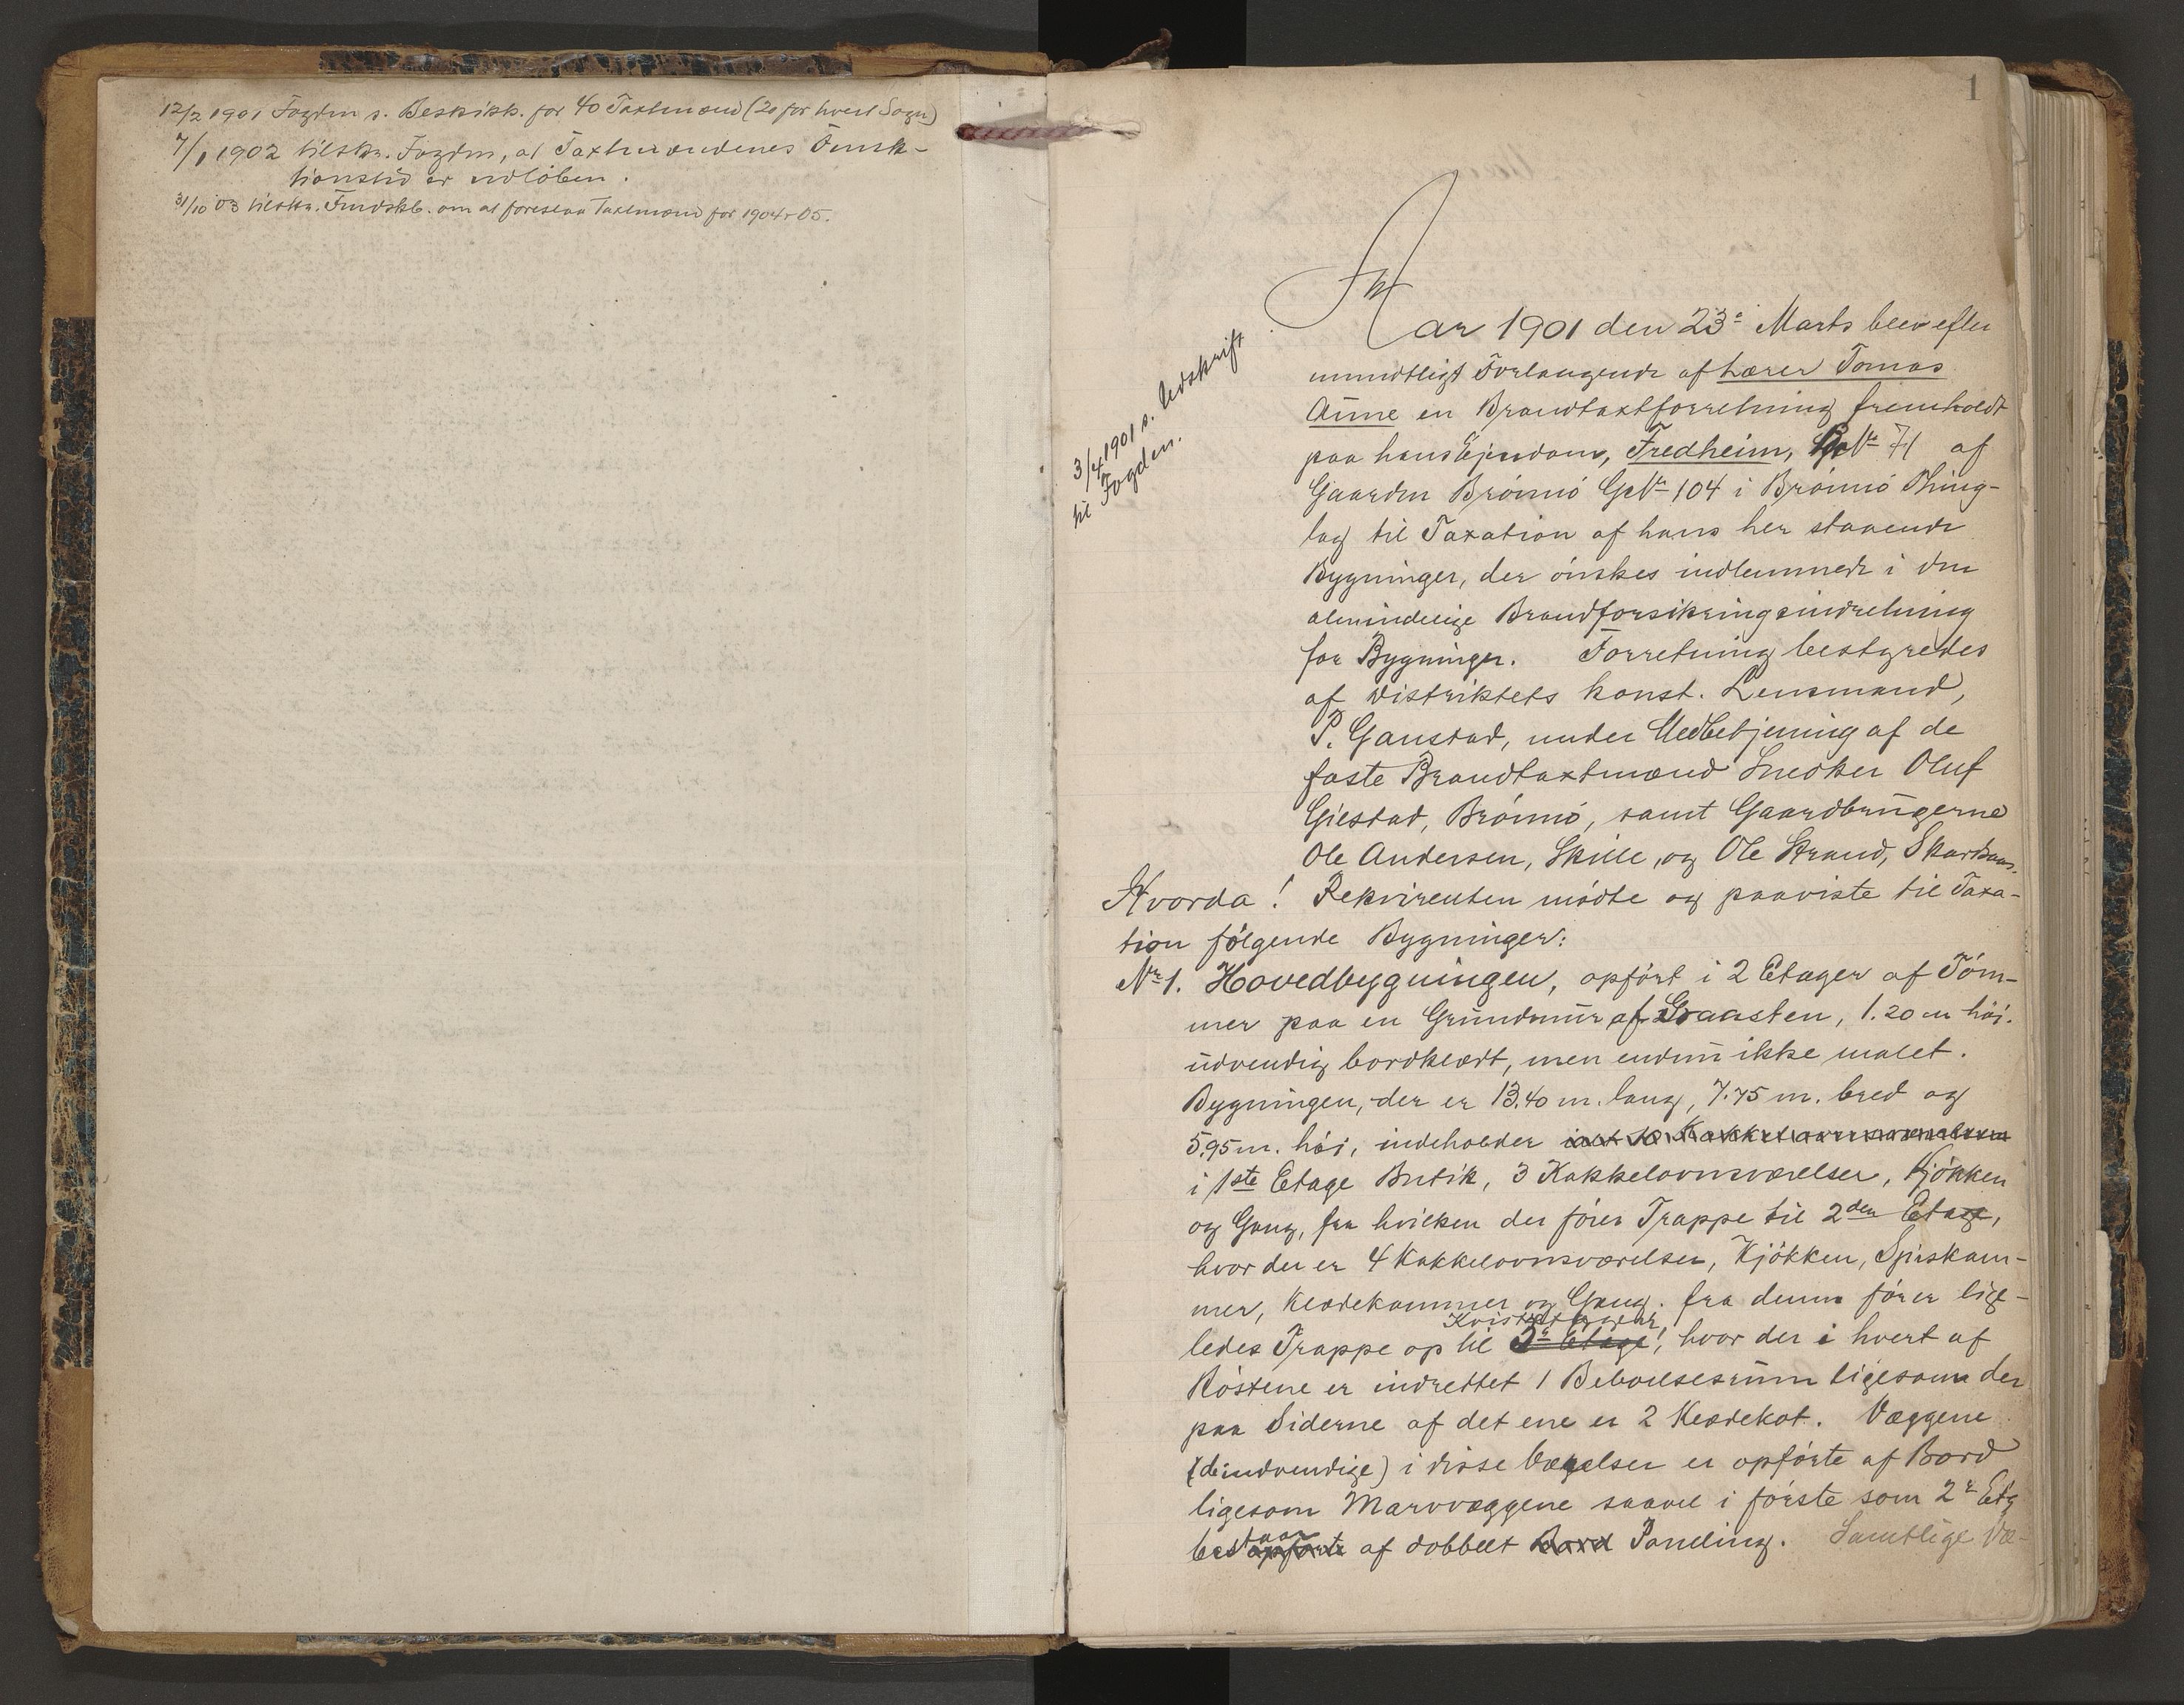 12/2 1901 Fogden s. Beskikk. for 40 Taxtmænd (20 for hvert Sogn)
7/1 1902 tilskr. Fogden, at Taxtmændenes Funk-
tionstid er udløben.
31/10 03 tilskr. om at foreslaa Taxtmænd for 1904 & 05.
1
Aar 1901 den 23de Marts blev efter
mundtligt Forlangende af Lærer Tomas
Aune en Brandtaxtforretning fremholdt
paa hans Ejendom, Fredheim, BrNr 71 af
Gaarden Brønnø GNr 104 i Brønnø Thing-
lag til Taxation af hans her staaende
Bygninger, der ønskes indlemmede i den
almindelige Brandforsikringsindretning
for Bygninger. Forretning bestyredes
af Distriktets konst. Lensmand,
P. Ganstad, under Medbetjening af de
faste Brandtaxtmænd Snedker Oluf
Gilstad, Brønnø, samt Gaardbrugerne
Ole Andersen, Skille, og Ole Strand,
3/4 1901 s. Udskrift
til Fogden.
Hvorda! Rekvirenten mødte og paaviste til Taxa-
tion følgende Bygninger:
Nr 1. Hovedbygningen, opført i 2 Etager af Tøm-
mer paa en Grundmur af Graasten, 1.20 m høi.
udvendig bordklædt, men endnu ikke malet.
Bygningen, der er 13.40 m. lang, 7.75 m. bred og
5.95 m. høi, indeholder
i 1ste Etage Butik, 3 Kakkelovnsværelser, Kjøkken
og Gang, fra hvilken der fører Trappe til 2den Etage,
hvor der er 4 Kakkelovnsværelser, Kjøkken, Spiskam-
mer, Klædekammer og Gang. fra denne fører lige-
ledes Trappe op til 3de Etage, hvor der i hvert af
Røstene er indrettet 1 Beboelsesrum ligesom der
paa Siderne af det ene er 2 Klædekot. Væggene
(de indvendige) i disse Værelser er opførte af Bord
ligesom Marvvæggene saavel i første som 2de Etg
bestaar opførte af dobbelt Bord Paneling. Samtlige Væ-